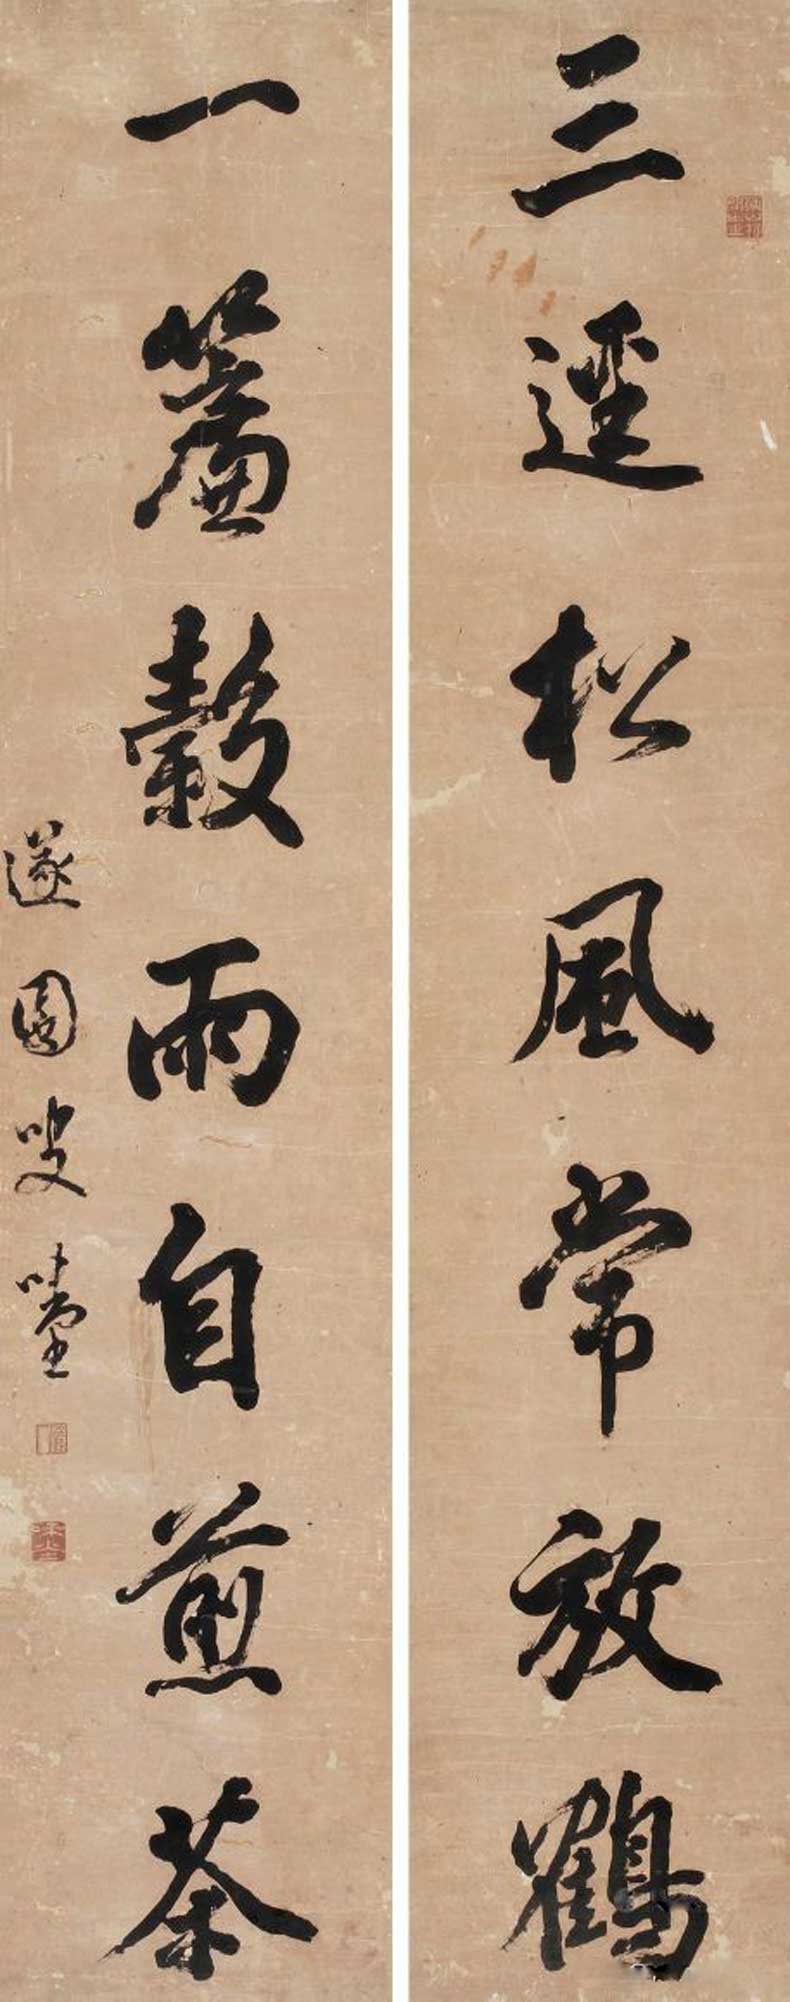 三逕松風常放鶴
一簾穀雨自煎茶
遂園叟